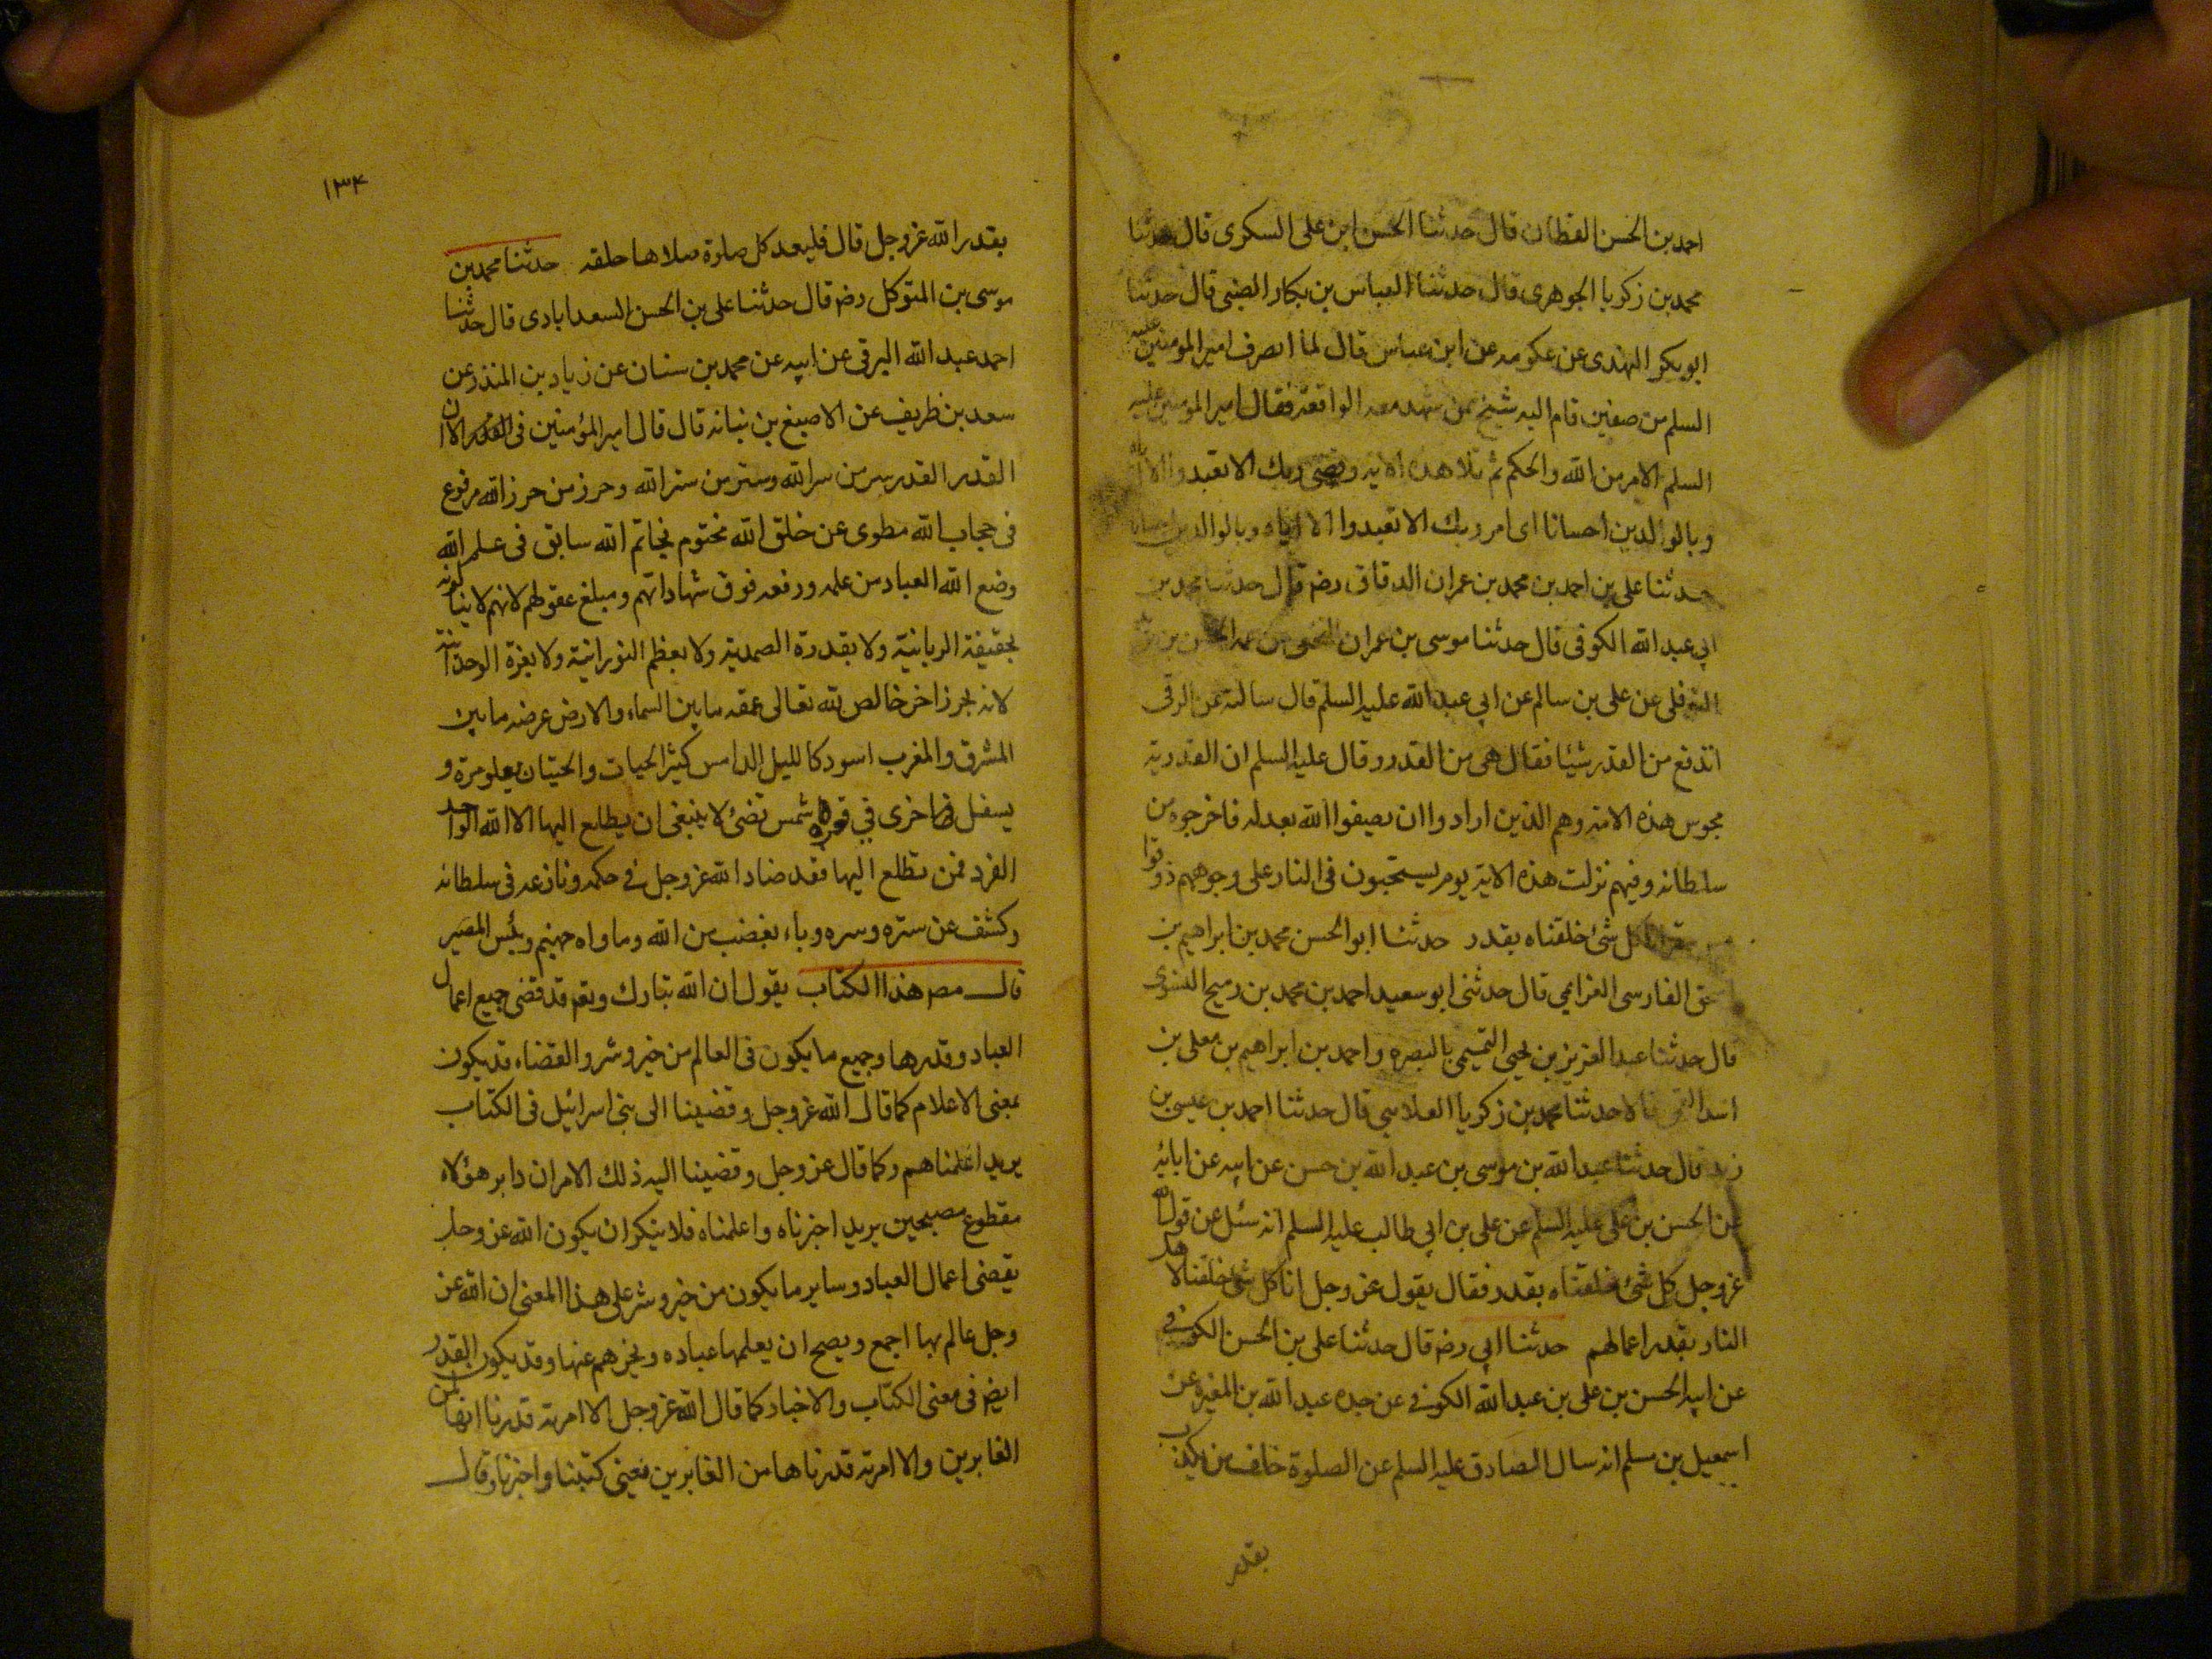 احمد بن الحسن القطان قال حدثنا الحسن ابن على السكرى قال حدثنا
محمد بن زكريا الجوهرى قال حدثنا العباس بن بكار الضبى قال حدثنا
ابو بكر الهذى عن عكومه عن ابن عباس قال لما انصرف امير المومنين عليه
السلم من صفين قام اليه شيخ ممن شهد معه الواقعة فقال امير المومنين عليه
السلم الامر من الله والحكم ثم تلا هذه الاية وقضى ربك الا تعبدوا الا اياه
وبالوالدين احسانا اى امر ربك الا تعبدوا الا اياه وبالوالدين احسانا
حدثنا على بن احمد بن محمد بن عمران الدقاق رضه قال حدثنا محمد بن
ابى عبد الله الكوفى قال حدثنا موسى بن عمران النخعى عن عمه الحسين بن
النوفلى عن على بن سالم عن ابى عبد الله عليه السلم قال سالته عن الرقى
اتدفع من القدر شيئا فقال هى من القدر وقال عليه السلم ان القدرية
مجوس هذه الامة وهم الذين ارادوا ان يصفوا الله بعدله فاخرجوه من
سلطانه وفيهم نزلت هذه الاية يوم يسحبون فى النار على وجوههم ذوقوا
مس سقر انا كل شئ خلقناه بقدر حدثنا ابو الحسن محمد بن ابراهيم بن
اسحق الفارسى العزامى قال حدثنى ابو سعيد احمد بن محمد بن رميح النسوى
قال حدثنا عبد العزيز بن يحيى التميمى بالبصره واحمد بن ابراهيم بن معلى بن
اسد العمى قالا حدثنا محمد بن زكريا العلابى قال حدثنا احمد بن عيسى بن
زيد قال حدثنا عبد الله بن موسى بن عبد الله بن حسن عن ابيه عن ابائه
عن الحسن بن على عليه السلم عن على بن ابى طالب عليه السلم انه سئل عن قول الله
عز وجل كل شئ خلقناه بقدر فقال يقول عز وجل انا كل شئ خلقناه لاهل
النار بقدر اعمالهم حدثنا ابى رضه قال حدثنا على بن الحسن الكوفى
عن ابيه الحسن بن على بن عبد الله الكوفى عن جده عبد الله بن المغيره عن
اسمعيل بن مسلم انه سال الصادق عليه السلم عن الصلوة خلف من يكذب
بقدر
١٣٤
بقدر الله عز وجل قال فليعد كل صلوة صلاها خلفه حدثنا محمد بن
موسى بن المتوكل رضه قال حدثنا على بن الحسن السعدابادى قال حدثنا
احمد عبد الله البرقى عن ابيه عن محمد بن سنان عن زياد بن المنذر عن
سعد بن ظريف عن الاصبغ بن نباته قال قال امير المؤمنين فى القدر الا ان
القدر القدر سر من سر الله وستر من ستر الله وحرز من حرز الله مرفوع
فى حجاب الله مطوى عن خلق الله مختوم بخاتم الله سابق فى علم الله
وضع الله العباد من علمه ورفعه فوق شهاداتهم ومبلغ عقولهم لانهم لا ينالونه
بحقيقة الربانية ولا بقدرة الصمدية ولا بعظم النورانية ولا بعزة الوحدانية
لانه بحر زاخر خالص لله تعالى عمقه ما بين السماء والارض عرضه ما بين
المشرق والمغرب اسود كالليل الدامس كثير الحيات والحيتان يعلو مرة و
يسفل اخرى فى قعره شمس تضئ لا ينبغى ان يطلع اليها الا الله الواحد
الفرد فمن تطلع اليها فقد ضاد الله عز وجل فى حكمه ونازعه فى سلطانه
وكشف عن ستره وسره وباء بغضب من الله وماواه جهنم وبئس المصير
قال مصـ هذا الكتاب يقول ان الله تبارك وتعه قد قضى جميع اعمال
العباد وقدرها وجميع ما يكون فى العالم من خير وشر والقضاء قد يكون
بمعنى الاعلام كما قال الله عز وجل وقضينا الى بنى اسرائيل فى الكتاب
يريد اعلمناهم وكما قال عز وجل وقضينا اليه ذلك الامر ان دابر هؤلاء
مقطوع مصبحين يريد اخبرناه واعلمناه فلا ينكر ان يكون الله عز وجل
يقضى اعمال العباد وساير ما يكون من خير وشر على هذا المعنى ان الله عز
وجل عالم بها اجمع ويصح ان يعلمها عباده ويخبرهم عنها وقد يكون القدر
ايضه فى معنى الكتاب والاخبار كما قال الله عز وجل الا امرته قدرنا انها لمن
الغابرين والا امرته قدرناها من الغابرين يعنى كتبنا واخبرنا وقال